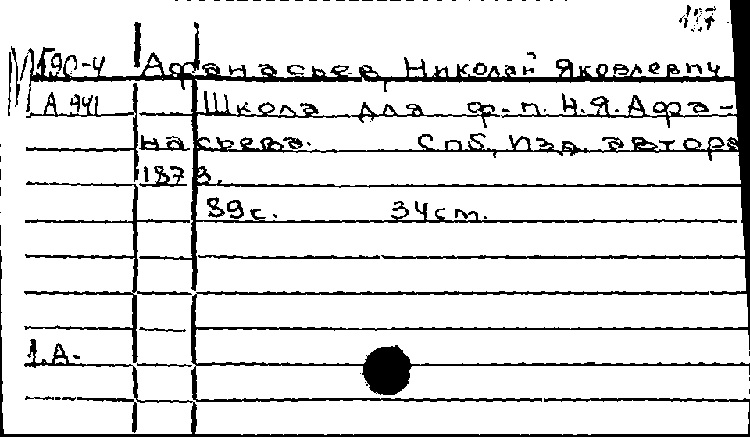 127
М 190-4 Афанасьев, Николай Яковлевич
А 941 Школа для ф-п. Н.Я.Афа-
насьева. Спб, Изд. автора
1873.
89 с. 34 cm.
1.А.